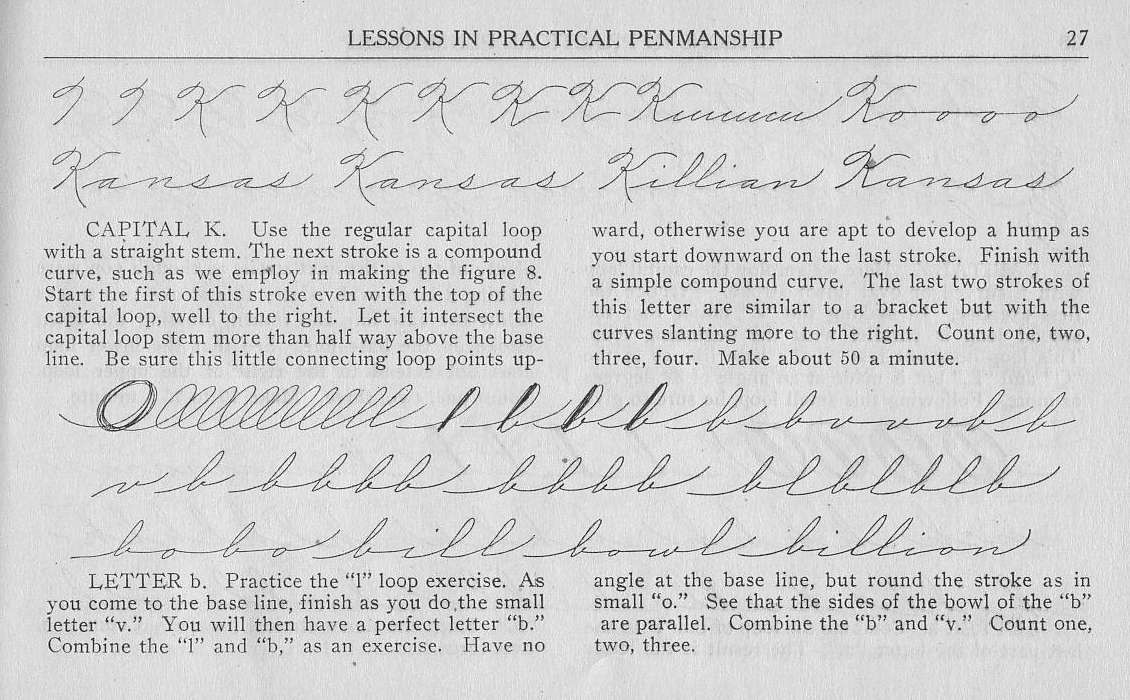 LESSONS IN PRACTICAL PENMANSHIP 27
K K K K K K Kuuuuu Koooo
Kansas Kansas Killian Kansas
CAPITAL K. Use the regular capital loop
with a straight stem. The next stroke is a compound
curve, such as we employ in making the figure 8.
Start the first of this stroke even with the top of the
capital loop, well to the right. Let it intersect the
capital loop stem more than half way above the base
line. Be sure this little connecting loop points up-
ward, otherwise you are apt to develop a hump as
you start downward on the last stroke. Finish with
a simple compound curve. The last two strokes of
this letter are similar to a bracket but with the
curves slanting more to the right. Count one, two,
three, four. Make about 50 a minute.
b b b b v v v b b
v b b b b b b b b b b l b l b l b
bo bo bill bowl billion
LETTER b. Practice the “l” loop exercise. As
you come to the base line, finish as you do the small
letter “v.” You will then have a perfect letter “b.”
Combine the “l” and “b,” as an exercise. Have no
angle at the base line, but round the stroke as in
small “o.” See that the sides of the bowl of the “b”
are parallel. Combine the “b” and “v.” Count one,
two, three.